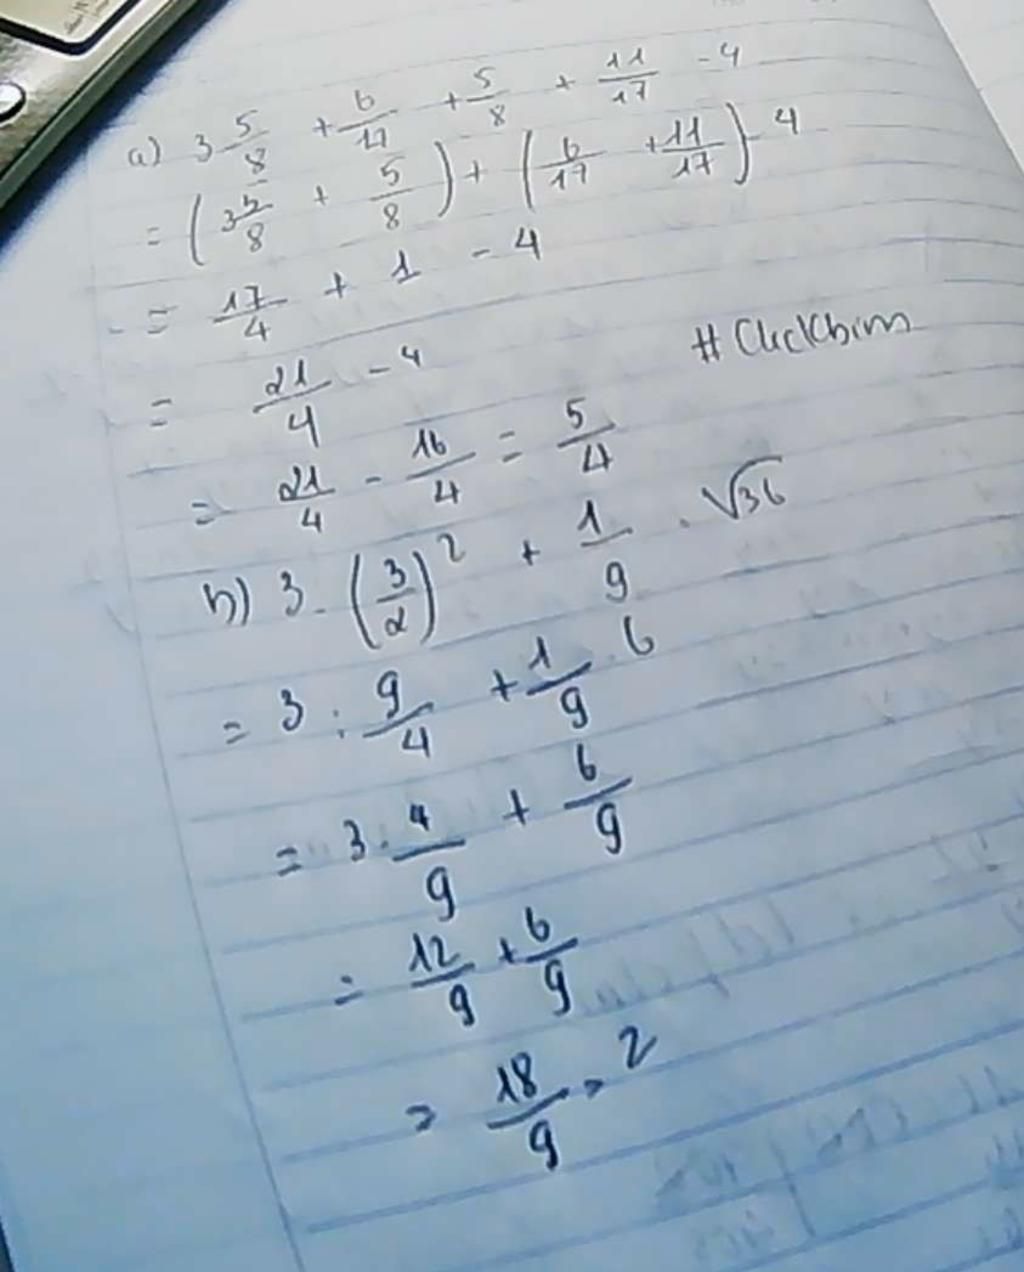 a) 3 5/8 + 6/17 + 5/8 + 11/17 - 4
= (3 5/8 + 5/8) + (6/17 + 11/17) - 4
= 17/4 + 1 - 4
= 21/4 - 4
#Clickbim
= 21/4 - 16/4 = 5/4
b) 3 : (3/2)² + 1/9 . √36
= 3 : 9/4 + 1/9 . 6
= 3 . 4/9 + 6/9
= 12/9 + 6/9
= 18/9 = 2